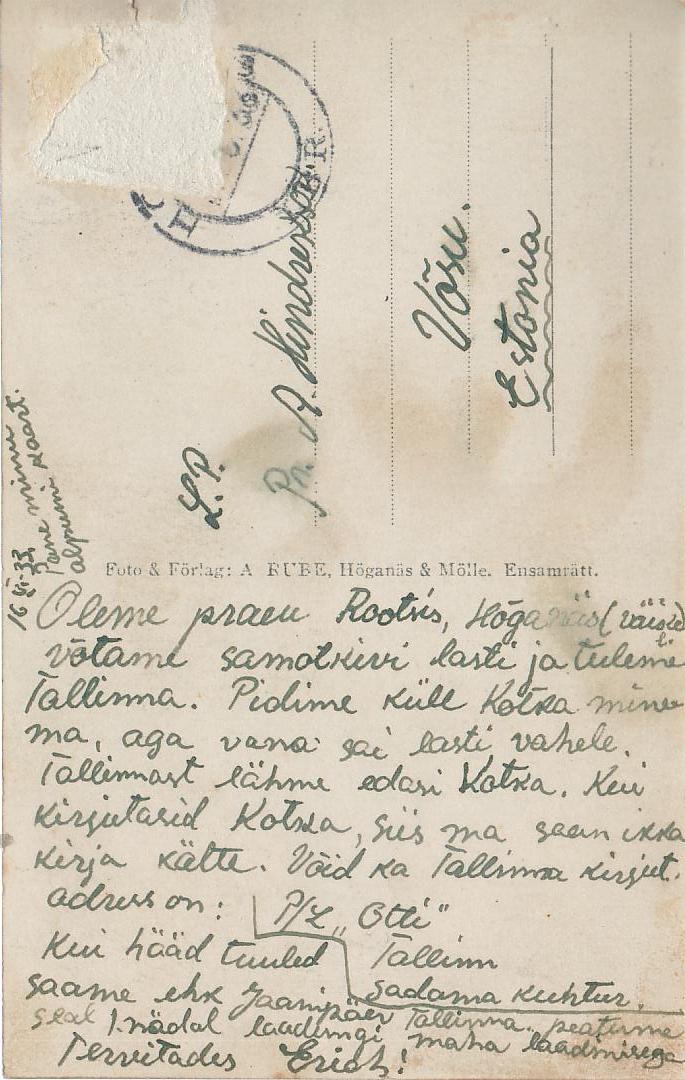 L.P.
Pr. A Hindrekson
Võsu.
Estonia
16 VI-33
Pane minu
alpumi kaart.
Foto & Förlag: A RUBE, Höganäs & Mölle. Ensamrätt.
Oleme praeu Rootsis, Höganäs (väike)
võtame samotkivi lasti ja tuleme
Tallinna. Pidime küll Kotka mine
ma, aga vana sai lasti vahele.
Tallinnast lähme edasi Kotka. Kui
kirjutasid Kotka, siis ma saan ikka
kirja kätte. Võid ka Tallinna kirjut.
adress on: P/L „Otti"
Tallinn
Sadama kuhtur.
Kui hääd tuuled
saame ehk Jaanipäev Tallinna. peatume
seal 1. nädal laadungi maha laadimisega
Tervitades Erich!